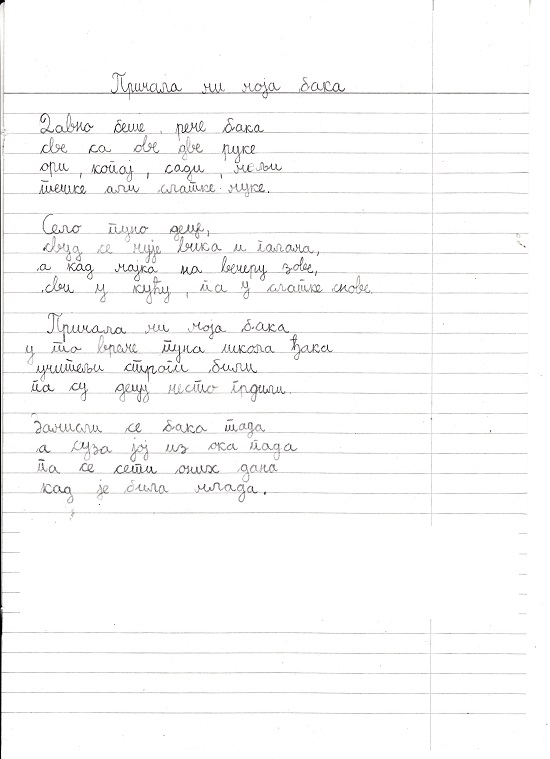 Причала ми моја бака
Давно беше, рече бака
све са ове две руке
ори, копај, сади, мељи
тешке али слатке муке.
Село пуно деце,
свуд се чује вика и галама,
а кад мајка на вечеру зове,
сви у кућу, па у слатке снове.
Причала ми моја бака
у то време пуна школа ђака
учитељи строги били
па су децу често грдили.
Замисли се бака тада
а суза јој из ока пада
па се сети оних дана
кад је била млада.